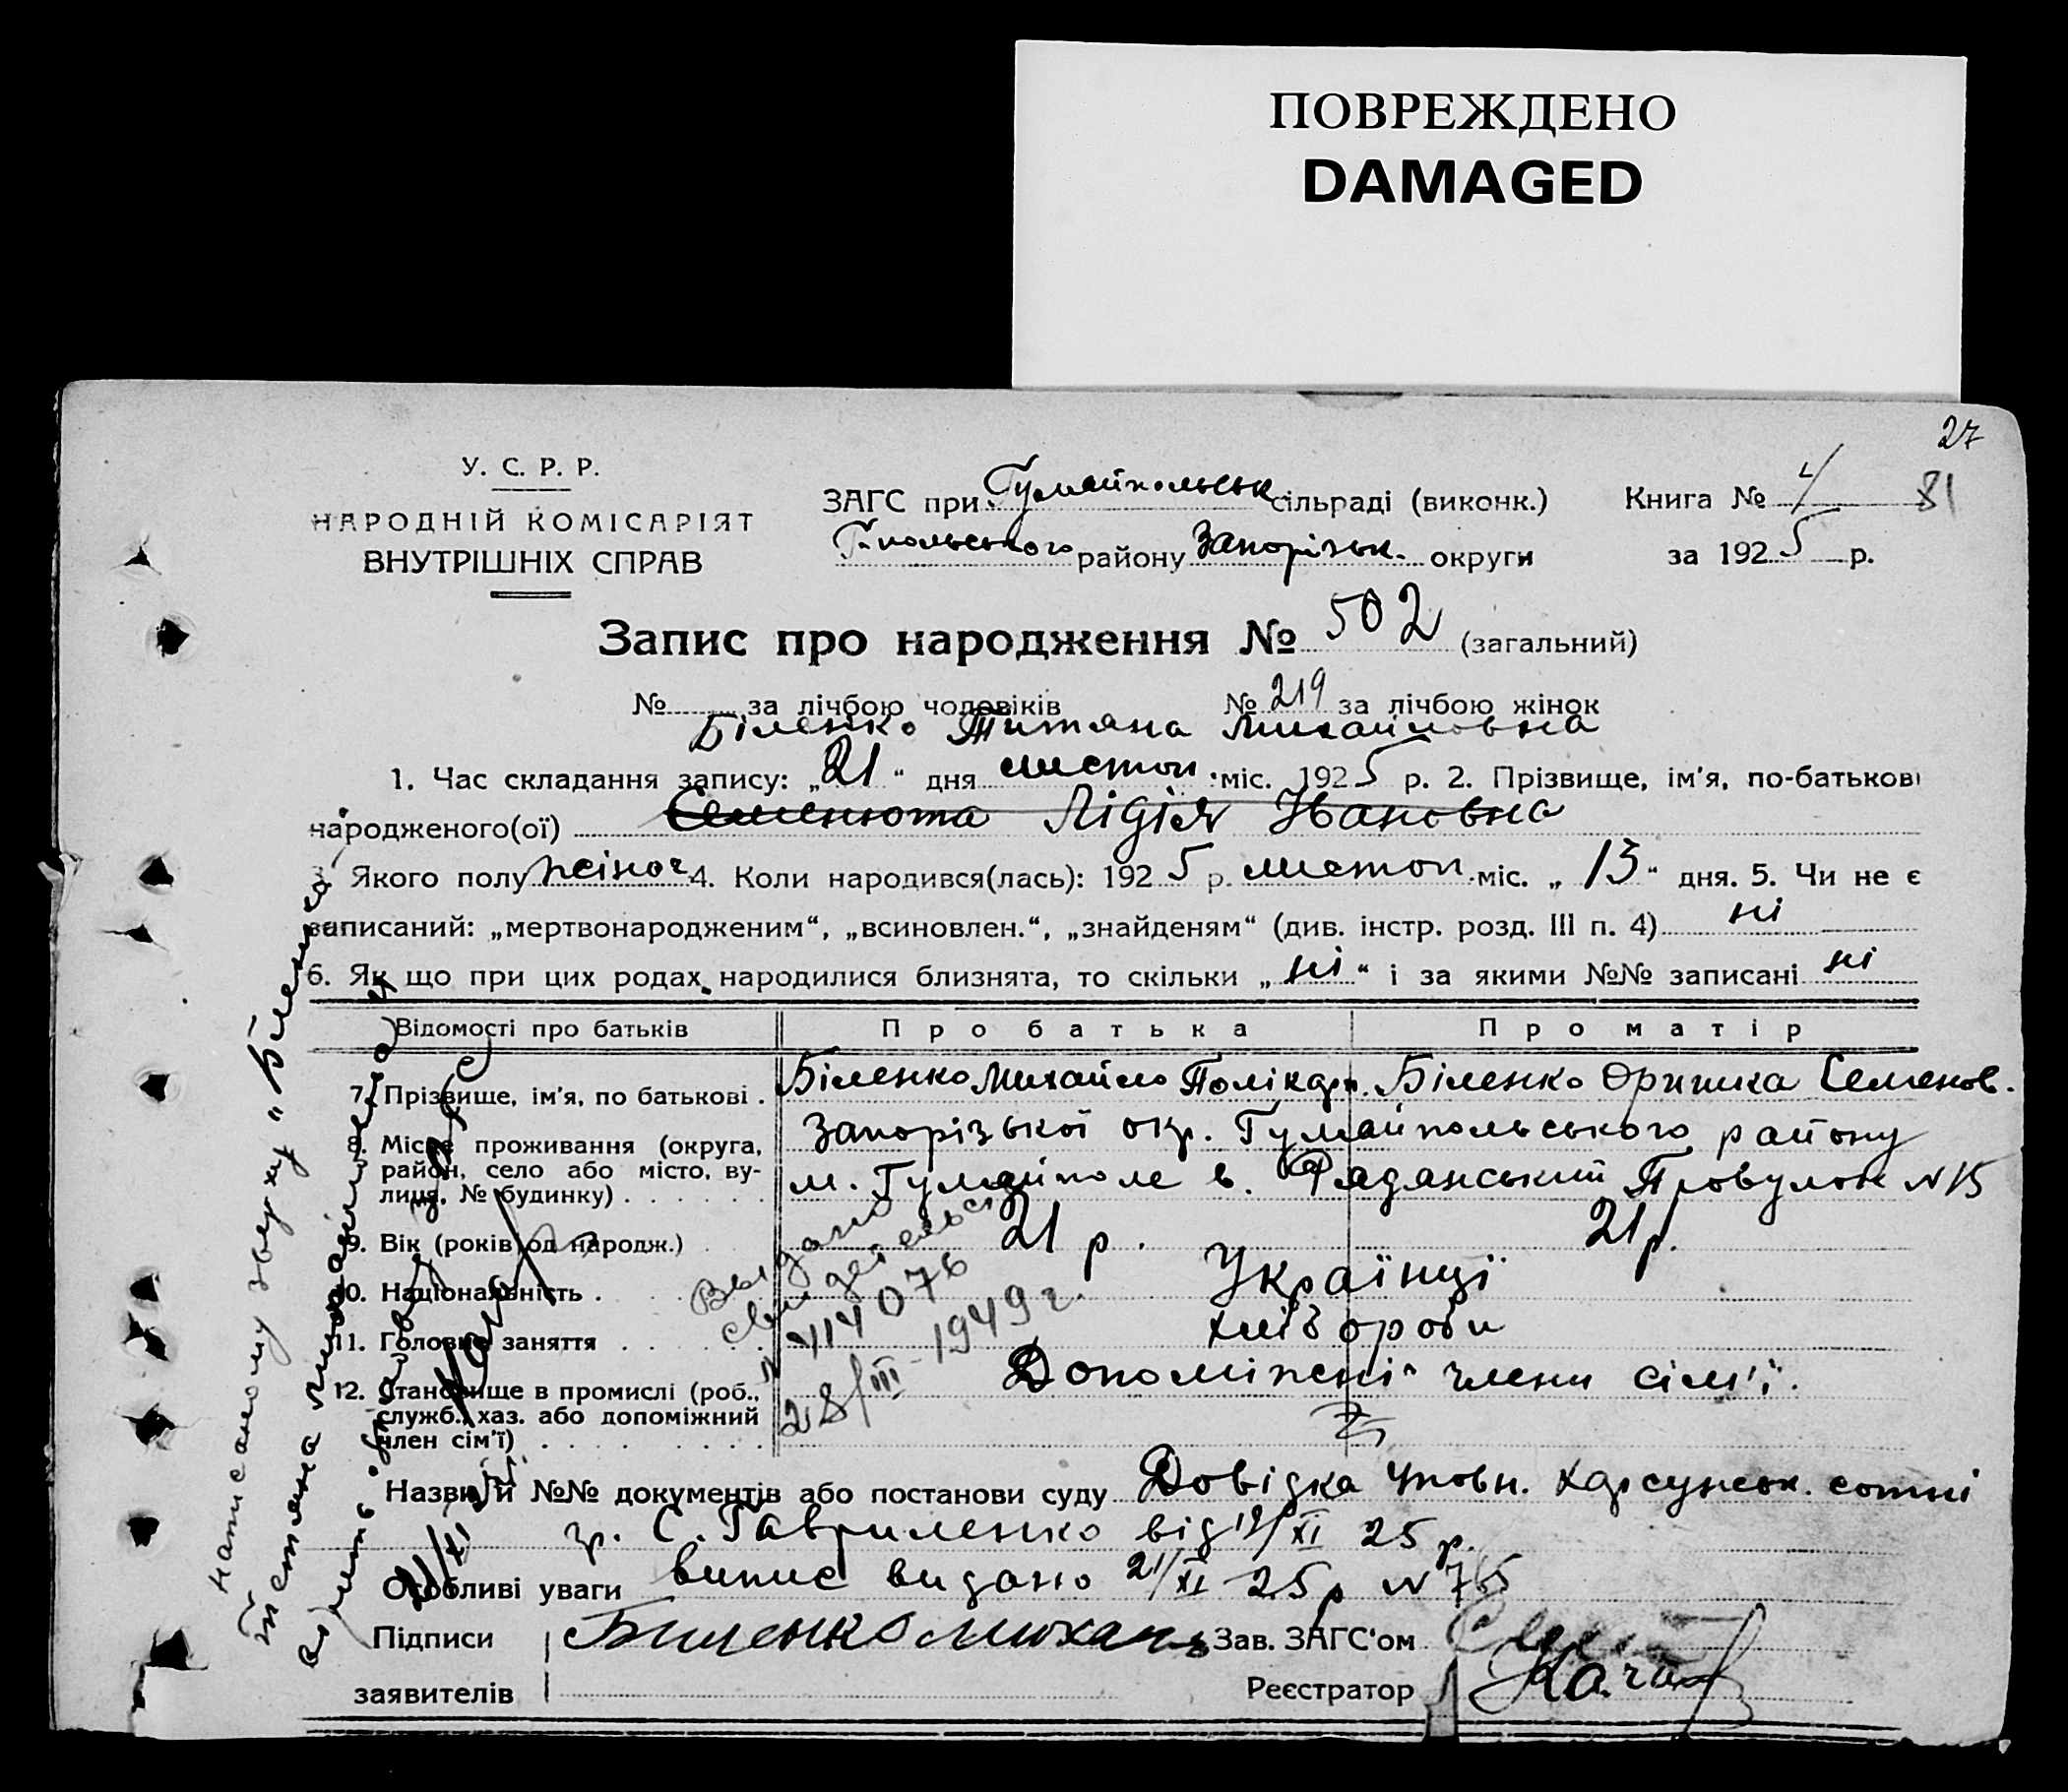 ПОВРЕЖДЕНО
DAMAGED
27
81
У. С. Р. Р.
НАРОДНІЙ КОМІСАРІЯТ
ВНУТРІШНІХ СПРАВ
ЗАГС при Гуляйпольськ сільраді (виконк.)
Г.польського району Запорізьк. округи
Книга № 4
за 1925 р.
Запис про народження № 502 (загальний)
№ за лічбою чоловіків № 219 за лічбою жінок
Біленко Титяна Михайловна
1. Час складання запису: „21“ дня листоп. міс. 1925 р. 2. Прізвище, ім'я, по-батькові
народженого(ої) Семенюта Лідія Івановна
3. Якого полу жіноч 4. Коли народився(лась): 1925 р. листоп. міс. „13“ дня. 5. Чи не є
записаний: „мертвонародженим“, „всиновлен.“, „знайденям“ (див. інстр. розд. III п. 4) ні
6. Як що при цих родах народилися близнята, то скільки „ні“ і за якими №№ записані ні
Відомості про батьків Про батька Про матір
7. Прізвище, ім'я, по батькові . Біленко Михайло Полікар. Біленко Оришка Семенов.
8. Місце проживання (округа, район, село або місто, вулиця, № будинку) Запорізької окр. Гуляйпольського району
м. Гуляйполе в. Радянський Провулок № 15
9. Вік (років од народж.) 21 р. 21 р.
10. Національність . Українці
11. Головне заняття хліборобы
12. Становище в промислі (роб., служб., хаз. або допоміжний член сім'ї) Допоміжні члени сім'ї.
Выдано
свидетельст
№ 414076
28/III-1949 г.
Назви й №№ документів або постанови суду Довідка Уповн. Харсунськ. сотні
гр. С. Гавриленко від 19/XI 25 р.
Особливі уваги випис видано 21/XI 25 р № 765
Підписи заявителів Билєнко Михаил
Зав. ЗАГС'ом
Реєстратор
написаному зверху „Біленко
Тетяна Михайловна
вірить
21/XI